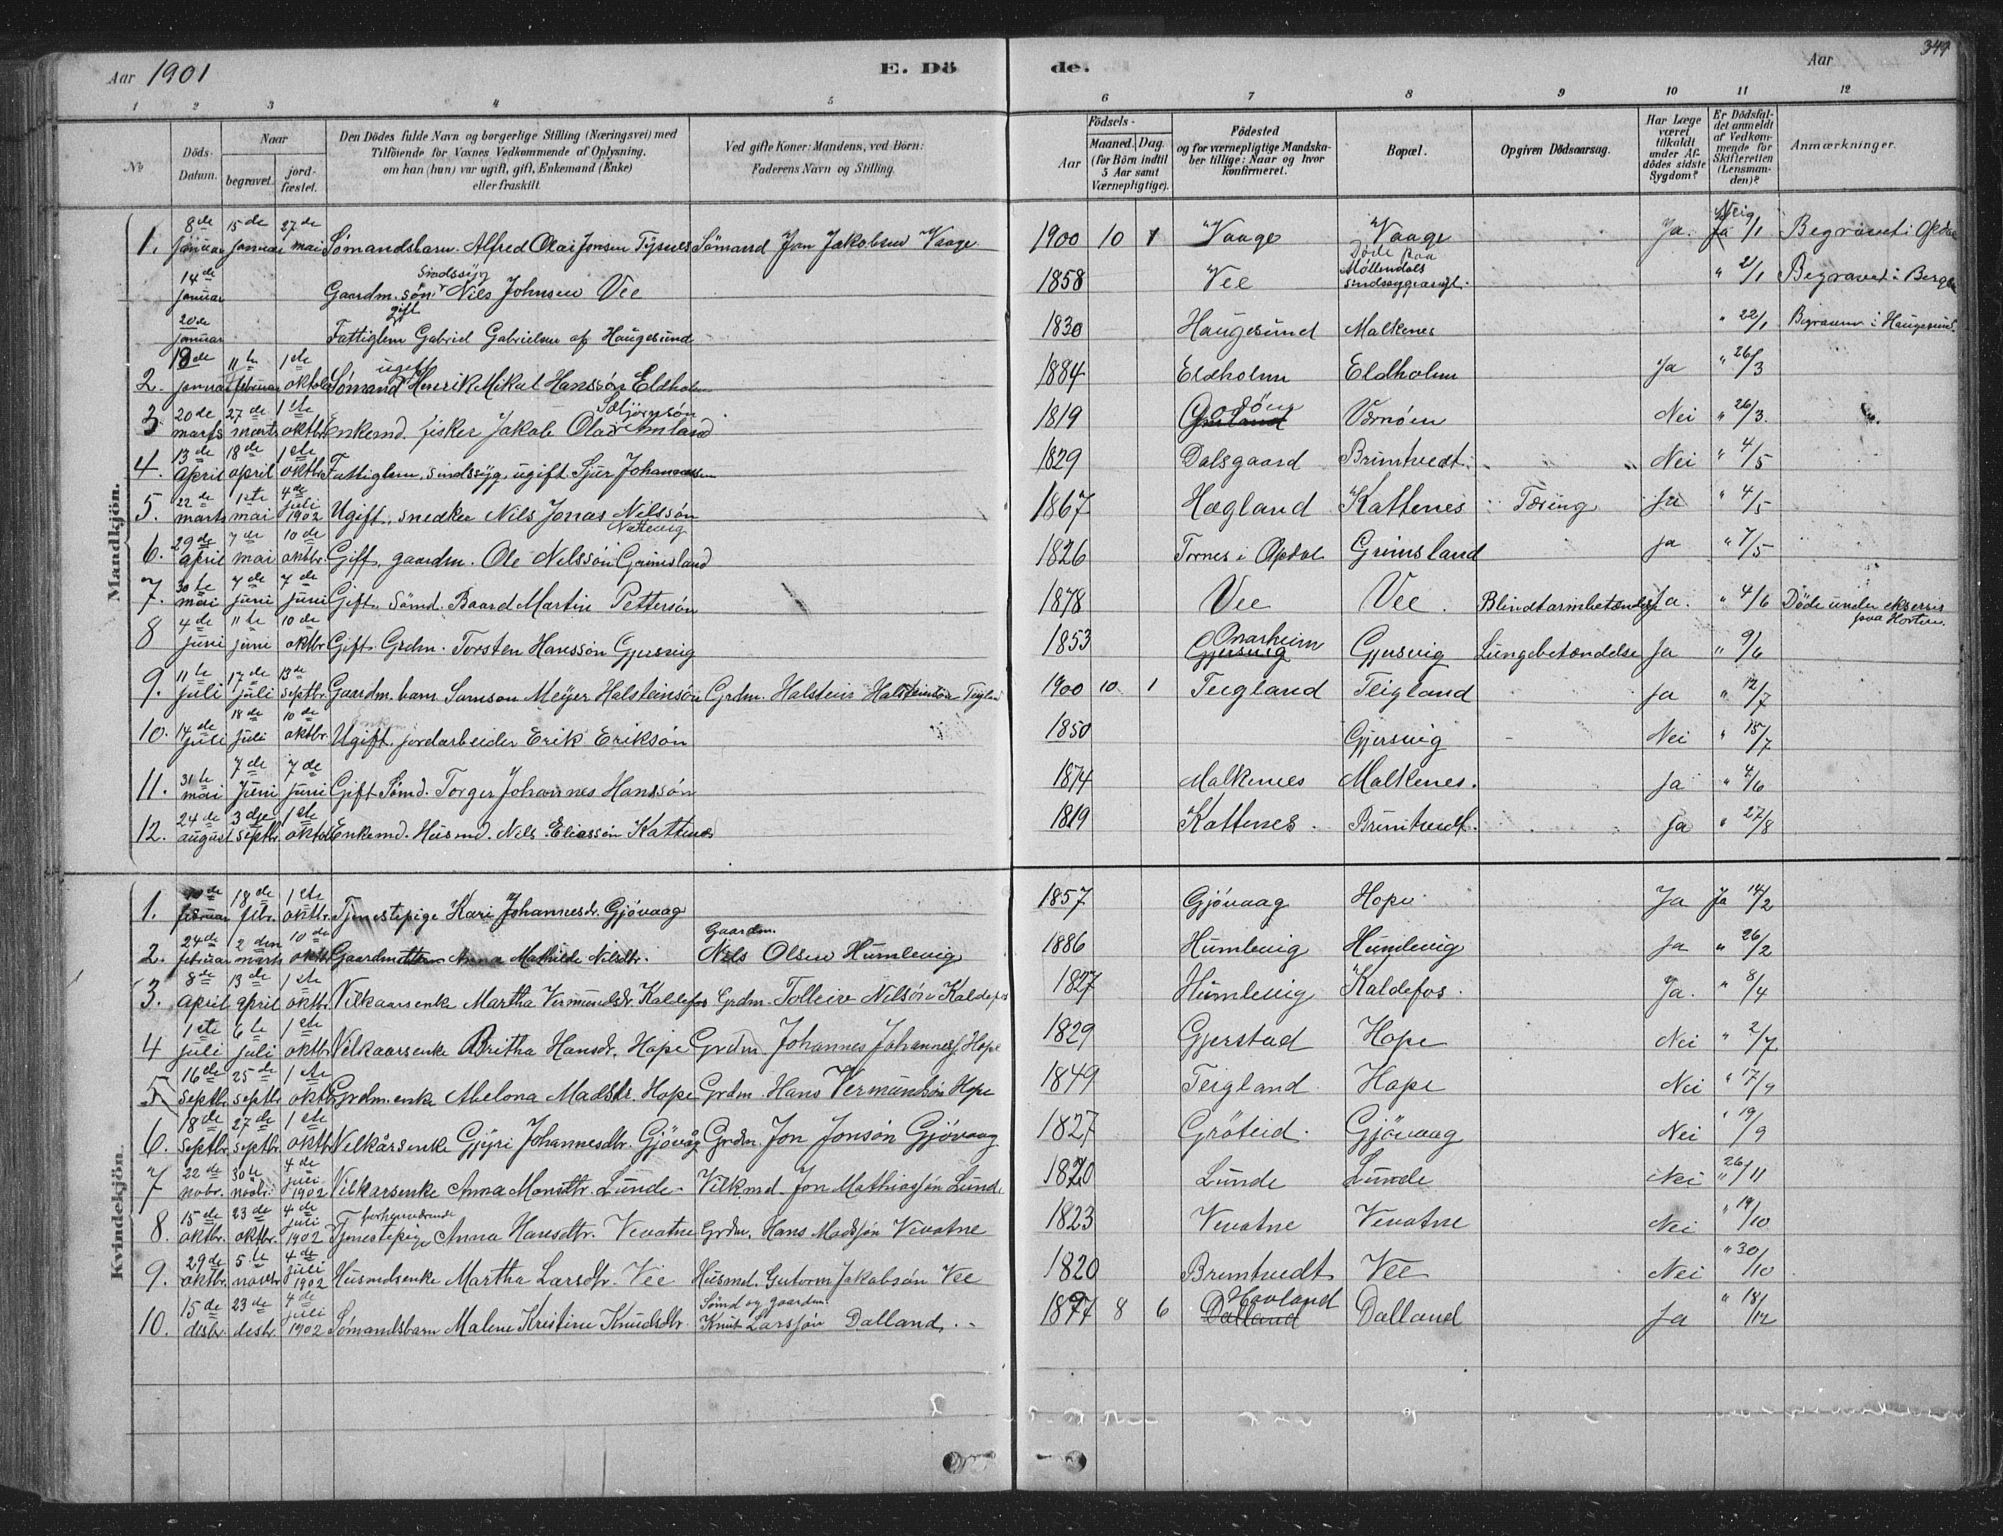 Aar 1901 E. Dö de. Aar 349
1 2 3 4 5 6 7 8 9 10 11 12
№
Döds-Datum.
Naar
begravet.
jord-fæstet.
Den Dödes fulde Navn og borgerlige Stilling (Næringsvei) med
Tilföiende for Voxnes Vedkommende af Oplysning,
om han (hun) var ugift, gift, Enkemand (Enke)
eller fraskilt.
Ved gifte Koner: Mandens, ved Börn:
Faderens Navn og Stilling.
Födsels-
Aar
Maaned. Dag.
(for Börn indtil
5 Aar samt
Værnepligtige).
Födested
og for værnepligtige Mandska-
ber tillige: Naar og hvor
konfirmeret.
Bopæl.
Opgiven Dödsaarsag.
Har Læge
været
tilkaldt
under Af-
dödes sidste
Sygdom?
Er Dödsfal-
det anmeldt
af Vedkom-
mende for
Skifteretten
(Lensman-
den)?
Anmærkninger.
Mandkjön.
1. 8de januar 15de januar 27de mai Sømandsbarn. Alfred Olai Jonsen Tysnes Sømand Jon Jakobsen Vaage 1900 10 1 Vaage Vaage Ja. Nei Ja 2/1 Begravet i Opdal
14de januar Gaardm. søn sindssyg Nils Johnsen Vee 1858 Vee Døde paa Møllendals sindssygeasyl. " 2/1 Begravet i Bergen
20de januar Fattiglem gift Gabriel Gabrielsen af Haugesund 1830 Haugesund Malkenes " 22/1 i Haugesund.
2. 18de januar 11te februar 1ste oktober Sømand ugift Henrik Mikal Hanssøn Eldholm 1884 Eldholm Eldholm Ja " 26/3
3 20de marts 27de marts 1ste oktbr. Enkemd. fisker Jakob Olai 1819 Godöen Værnøen Nei " 26/3.
4. 13de april 18de april 1ste oktbr. Fattiglem, sindssyg ugift Sjur Johannessen 1829 Dalsgaard Bruntvedt. Nei " 4/5
5. 22de marts 1ste mai 4de juli 1902 Ugift, snedker Nils Jonas Nilssøn Nattevig 1867 Hægland Kattenes Tæring Ja " 4/5
6. 29de april 7de mai 10de oktbr. Gift, gaardm. Ole Nilssøn Grimsland 1826 Tornes i Opdal Grimsland Ja " 7/5
7. 30te mai 7de juni 7de juni Gift. Sømd. Baard Martin Petterson 1878 Vee Vee. Blindtarmbetændelse Ja. " 4/6 Døde under eksersis paa Horten.
8 4de juni 11te juni 10de oktbr Gift. Grdm. Torsten Hanssøn Gjersvig 1853 Onarheim Gjersvig Gjersvig Lungebetændelse Ja " 9/6
9. 11te juli 17de juli 13de septbr. Gaardm. barn Samson Meyer Halsteinsøn Grdm. Halstein Halsteinsøn Teigland 1900 10 1 Teigland Teigland Ja " 12/7
10. 14de juli 18de juli 10de oktbr. Ugift, jordarbeider Erik Erikson 1850 Gjersvig Nei " 15/7
11. 31te mai 7de juni 7de juni Gift Sømd. Torger Johannes Hanssøn 1874 Malkenes Malkenes. Ja " 4/6
12. 24de august 3dje septbr. 1ste oktbr Enkemd. Husmd. Nils Eliassøn Kattenes 1819 Kattenes. Bruntvedt. Ja " 27/8
Kvindekjön.
1. februar 18de febr. 1ste oktbr. Tjenestepige Kari Johannesdr. Gjövaag 1857 Gjövaag Hope Ja Ja 14/2
2. 24de februar 2den marts 10de oktbr Anna Mathilde Nilsdtr. Gaardm. Nils Olsen Humlevig 1886 Humlevig Humlevig Ja " 26/2
3. 8de april 13de april 1ste oktbr. Vilkaarsenke Martha Vermundsdr. Kaldefos Grdm. Tolleiv Nilsøn Kaldefos 1827 Humlevig Kaldefos. Ja. " 8/4
4 1ste juli 6te juli 1ste oktbr. Velkaarsenke Britha Hansdr. Hope Grdm. Johannes Johanness. Hope 1829 Gjerstad Hope Nei " 2/7
5. 16de septbr. 25de septbr. 1ste oktbr Grdm. enke Abelona Madsdr. Hope Grdm. Hans Vermundsøn Hope 1849 Teigland. Hope Nei " 17/9
6. 18de septbr. 27de septbr. 1ste oktbr. Velkårsenke Gjyri Johannesdtr. Gjövåg Grdm. Jon Jonsøn Gjövaag 1827 Gröteid. Gjövaag Nei " 19/9
7 22de novbr. 30te novbr. 4de juli 1902 Vilkarsenke Anna Monsdtr. Lunde. Vilkmd. Jon Mathiassøn Lunde 1820 Lunde Lunde Nei 26/11 "
8. 15de oktbr. 23de oktbr. 4de juli 1902 forhenværende Tjenestepige Anna Hansdtr. Vevatne Grdm. Hans Madssøn Vevatne 1823 Vevatne Vevatne Nei " 19/10
9. 29de oktbr. 5te novbr 4de juli 1902 Husmdsenke Martha Larsdtr. Vee Husmd. Gutorm Jakobsøn Vee 1820 Bruntvedt Vee Nei " 30/10
10. 15de desbr. 23de desbr. 4de juli 1902 Sømandsbarn Malene Kristine Knudsdtr. Sømd og gaardm. Knut Larssøn Dalland. 1897 8 6 Hovland Dalland Dalland Ja " 18/12